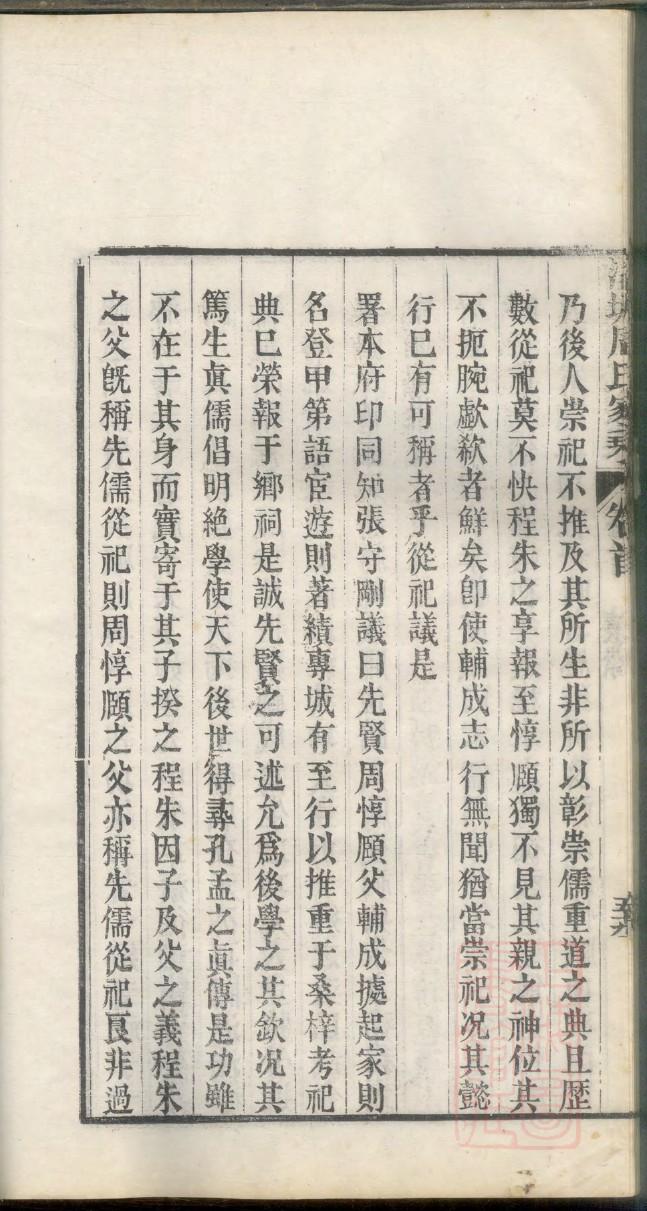 周氏家乘 卷首
乃後人崇祀不推及其所生非所以彰崇儒重道之典且歴
數從祀莫不快程朱之享報至惇頤獨不見其親之神位其
不扼腕歔欷者鮮矣卽使輔成志行無聞猶當崇祀况其懿
行已有可稱者乎從祀議是
署本府印同知張守剛議曰先賢周惇頤父輔成據起家則
名登甲第語宦遊則著績專城有至行以推重于桑梓考祀
典已榮報于鄉祠是誠先賢之可述允爲後學之其欽况其
篤生眞儒倡明絶學使天下後世得尋孔孟之眞傳是功雖
不在于其身而實寄于其子揆之程朱因子及父之義程朱
之父旣稱先儒從祀則周惇頤之父亦稱先儒從祀良非過